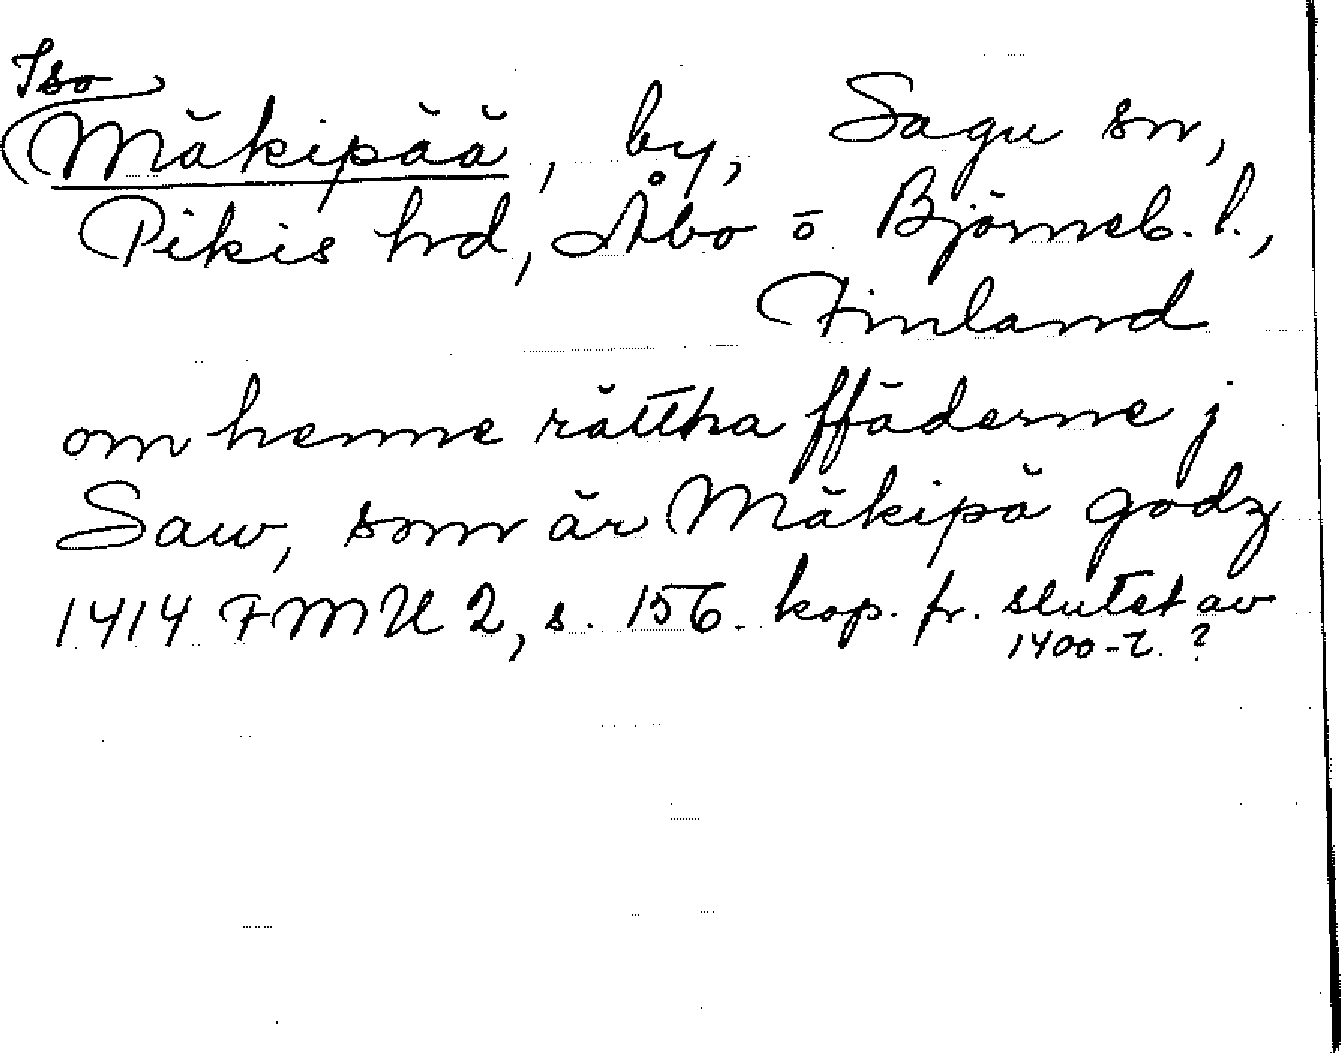 Iso
Mäkipää, by, Sagu sn,
Pikis hd, Åbo o Björneb. l.,
Finland
om henne rättha ffäderne j
Saw, som är Mäkipä godz
1414 FMU 2, s. 156. kop. fr. slutet av
1400-t. ?